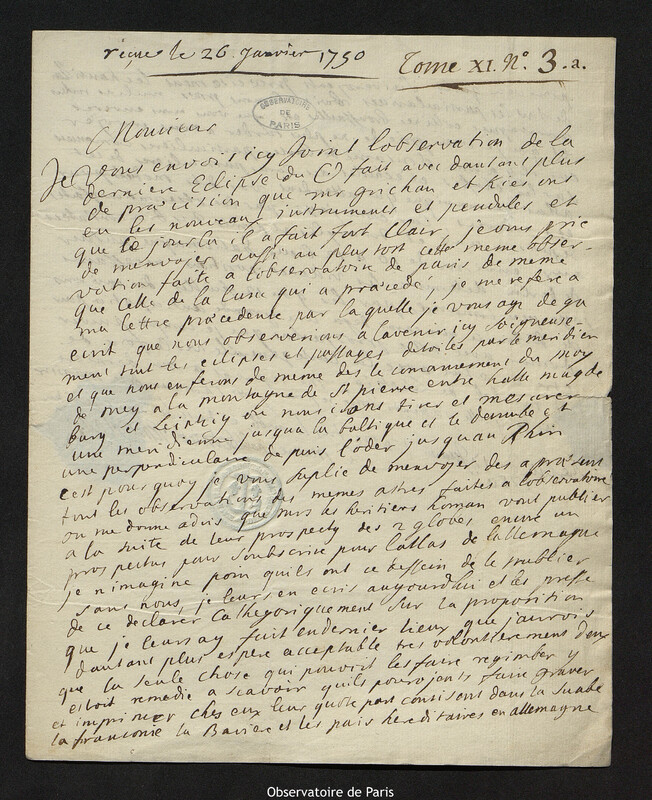 reçue le 26. Janvier 1750
Tome XI. Nº. 3.a.
OBSERVATOIRE DE PARIS
Monsieur
Je vous envois icy Joint lobservation de la
derniere Eclipse du ☉ fait avec dautant plus
de præcision que mr grichau et Kies ont
eu les nouveaux instruments et pendules et
que le jour la il a fait fort clair, je vous prie
de menvoyer aussi au plus tost cette meme obser-
vation faite a lobservatoire de paris de meme
que celle de la lune qui a præcedé, je me refere a
ma lettre præcedente par laquelle je vous ay de ga
ecrit que nous observerions a lavenir icy soigneuse-
ment tout les eclipses et passages detoiles par le meridien
et que nous en ferons de meme des le comancement du moy
de mey a la montagne de St pierre entre halle magde
burg et Leipzig ou nous irons tirer et mesurer
une meridienne jusqua la baltique et le danube et
une perpendiculaire de puis l'oder jusquau Rhin
cest pourquoy je vous suplie de menvoyer des a præsent
tout les observations des memes astres faites a lobservatoire
on me donne advis que mrs les heritiers homan vont publier
a la suite de leur prospectg des 2 globes encore un
prospectus pour souscrire pour latlas de lallemagne
je n'imagine poin quils ont ce dessein de le publier
sans nous, je leurs en ecris aujourdhui et les presse
de ce declarer Cathegoriquement sur la proposition
que je leurs ay fait en dernier lieux que jaurois
dautant plus espere acceptable tres volontierement deux
que la seule chose qui pouvoit les faire regimber y
estoit remedié a scavoir quils pourojents faire graver
et imprimer chez eux leur quote part consistant dans la Suabe
la franconie la Baviere et les païs hereditaires en allemagne
Observatoire de Paris